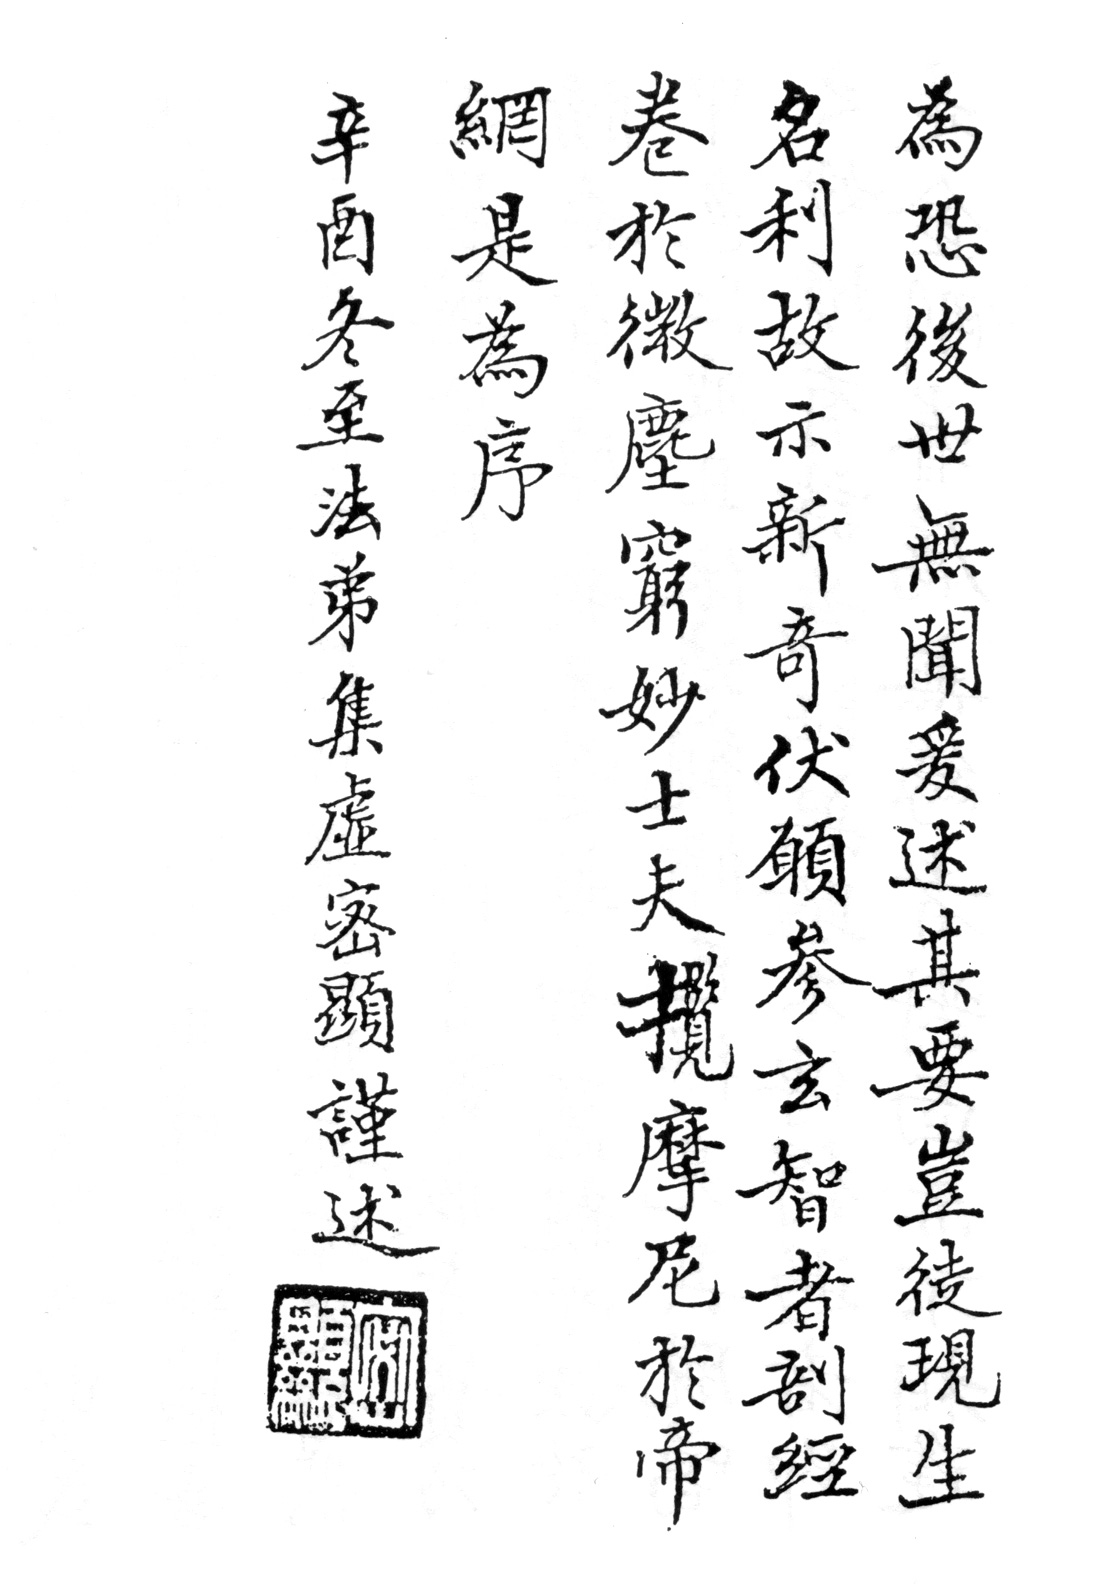 為恐後世無聞爰述其要豈徒現生
名利故示新奇伏願參玄智者剖經
卷於微塵窮妙士夫攬摩尼於帝
網是為序
辛酉冬至法弟集虛密顯謹述
密顯